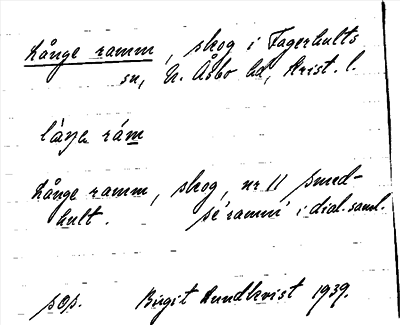 Långe ramm, skog i Fagerhults
sn, N. Åsbo hd, Krist. l.
låŋə rám
Långe ramm, skog, nr 11 Smed-
hult. se 'ramm' i dial. saml.
sop. Birgit Rundkvist 1939.